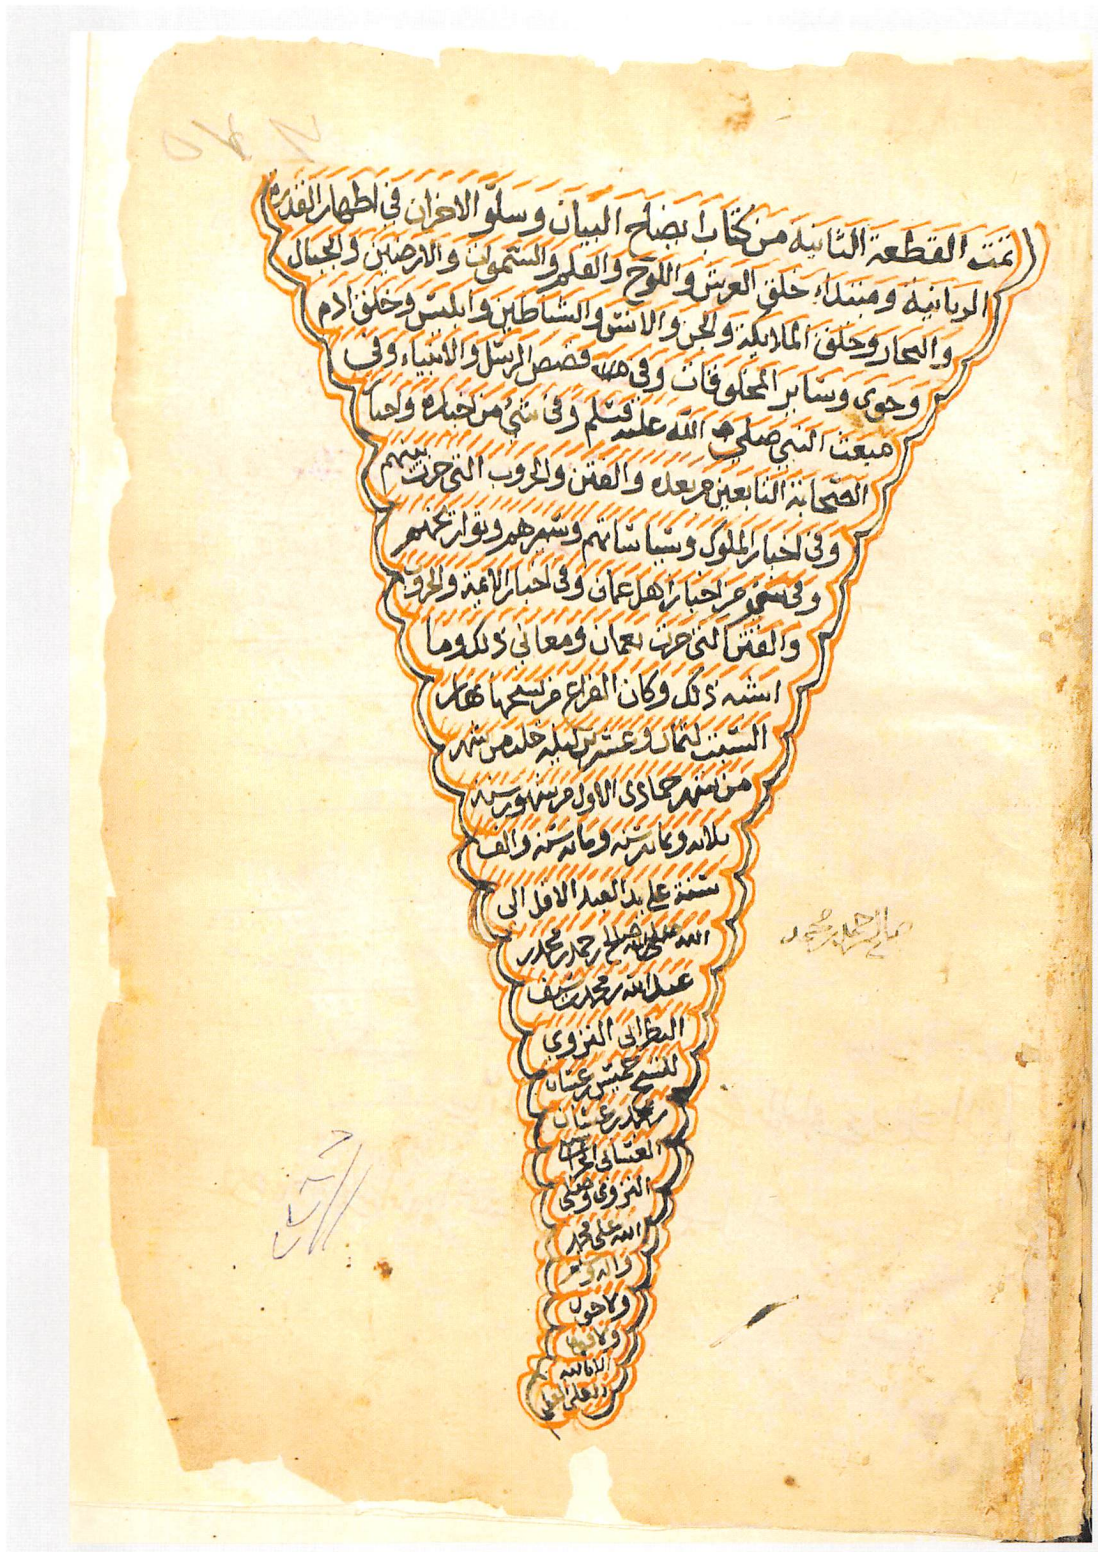 تمت القطعة الثانية من كتاب ايضاح البيان وسلو الاحزان في اظهار القدرة
الربانية ومبتداء خلق العرش واللوح والقلم والسموات والارضين والجبال
والبحار وخلق الملايكة والجن والانس والشياطين وابليس وخلق ادم
وحوى وساير المخلوقات وفي قصص الرسل والانبياء وفي
مبعث النبي صلى الله عليه وسلم وفي شي من اخباره واخبار
الصحابة التابعين من بعده والفتن والحروب التي جرت بينهم
وفي اخبار الملوك وسياساتهم وسيرهم وتواريخهم
وفي شي من اخبار اهل عمان وفي اخبار الايمة والحروب
والفتن التي جرت بعمان ومعاني ذلك وما
اشبه ذلك وكان الفراغ من نسخها نهار
السبت لثمان وعشرين ليلة خلت من شهر
من شهر جمادى الاول من شهور سنة
ثلاثة وثمانين سنة ومايتين سنة والف
سنة على يد العبد الاقل الى
الله صالح بن حمد بن محمد بن
عبدالله بن محمد بن
النزوي
للشيخ خميس بن غسان
بن محمد بن غسان
الغساني
النزوي وصلى
الله على محمد
واله وسلم
ولا حول
ولا قوة
الا بالله
العلي العظيم
صالح بن حمد بن محمد